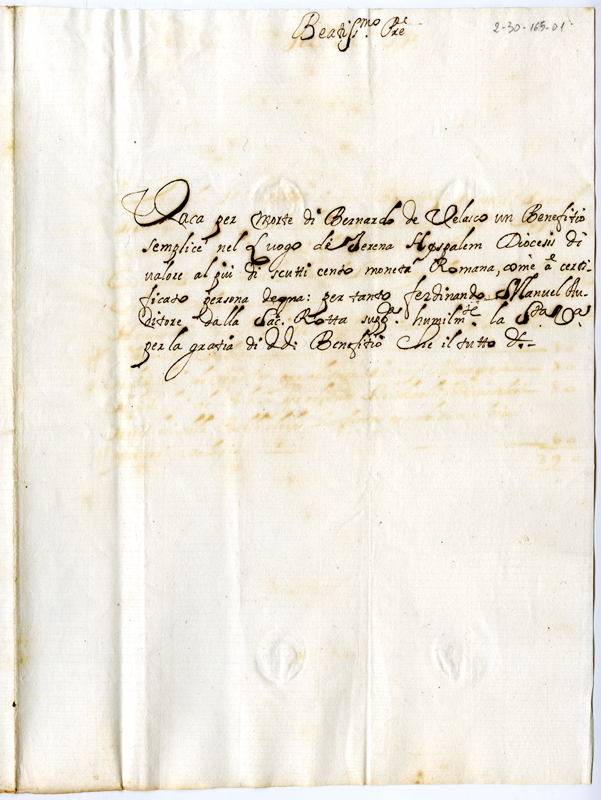 Beatiss.mo P.re
2-30-165-01
Vaca per morte di Bernardo de Velasco un Benefitio
semplice nel Luogo di Serena Hyspalem Diocesis di
valore al più di scutti cento moneta Romana, come è certi-
ficato persona degna: per tanto ferdinando Manuel Au-
ditore dalla Sac. Rotta supp.a humilm.te la S.tà V.a
per la gratia di d.di Benefitio Che il tutto &.-